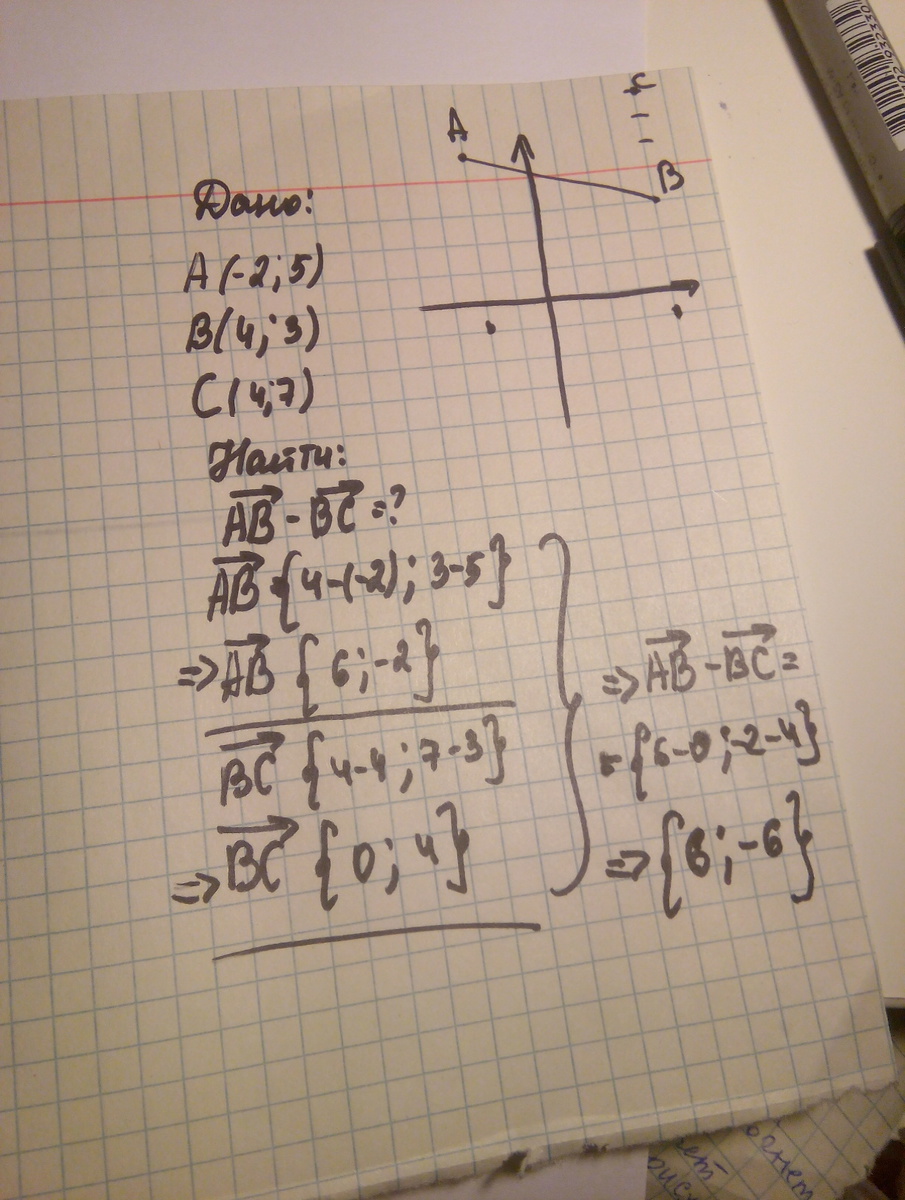 A
C
B
Дано:
A(-2;5)
B(4;3)
C(4;7)
Найти:
AB - BC = ?
AB {4-(-2); 3-5}
=> AB {6; -2}
BC {4-4; 7-3}
=> BC {0; 4}
=> AB - BC =
= {6-0; -2-4}
=> {6; -6}